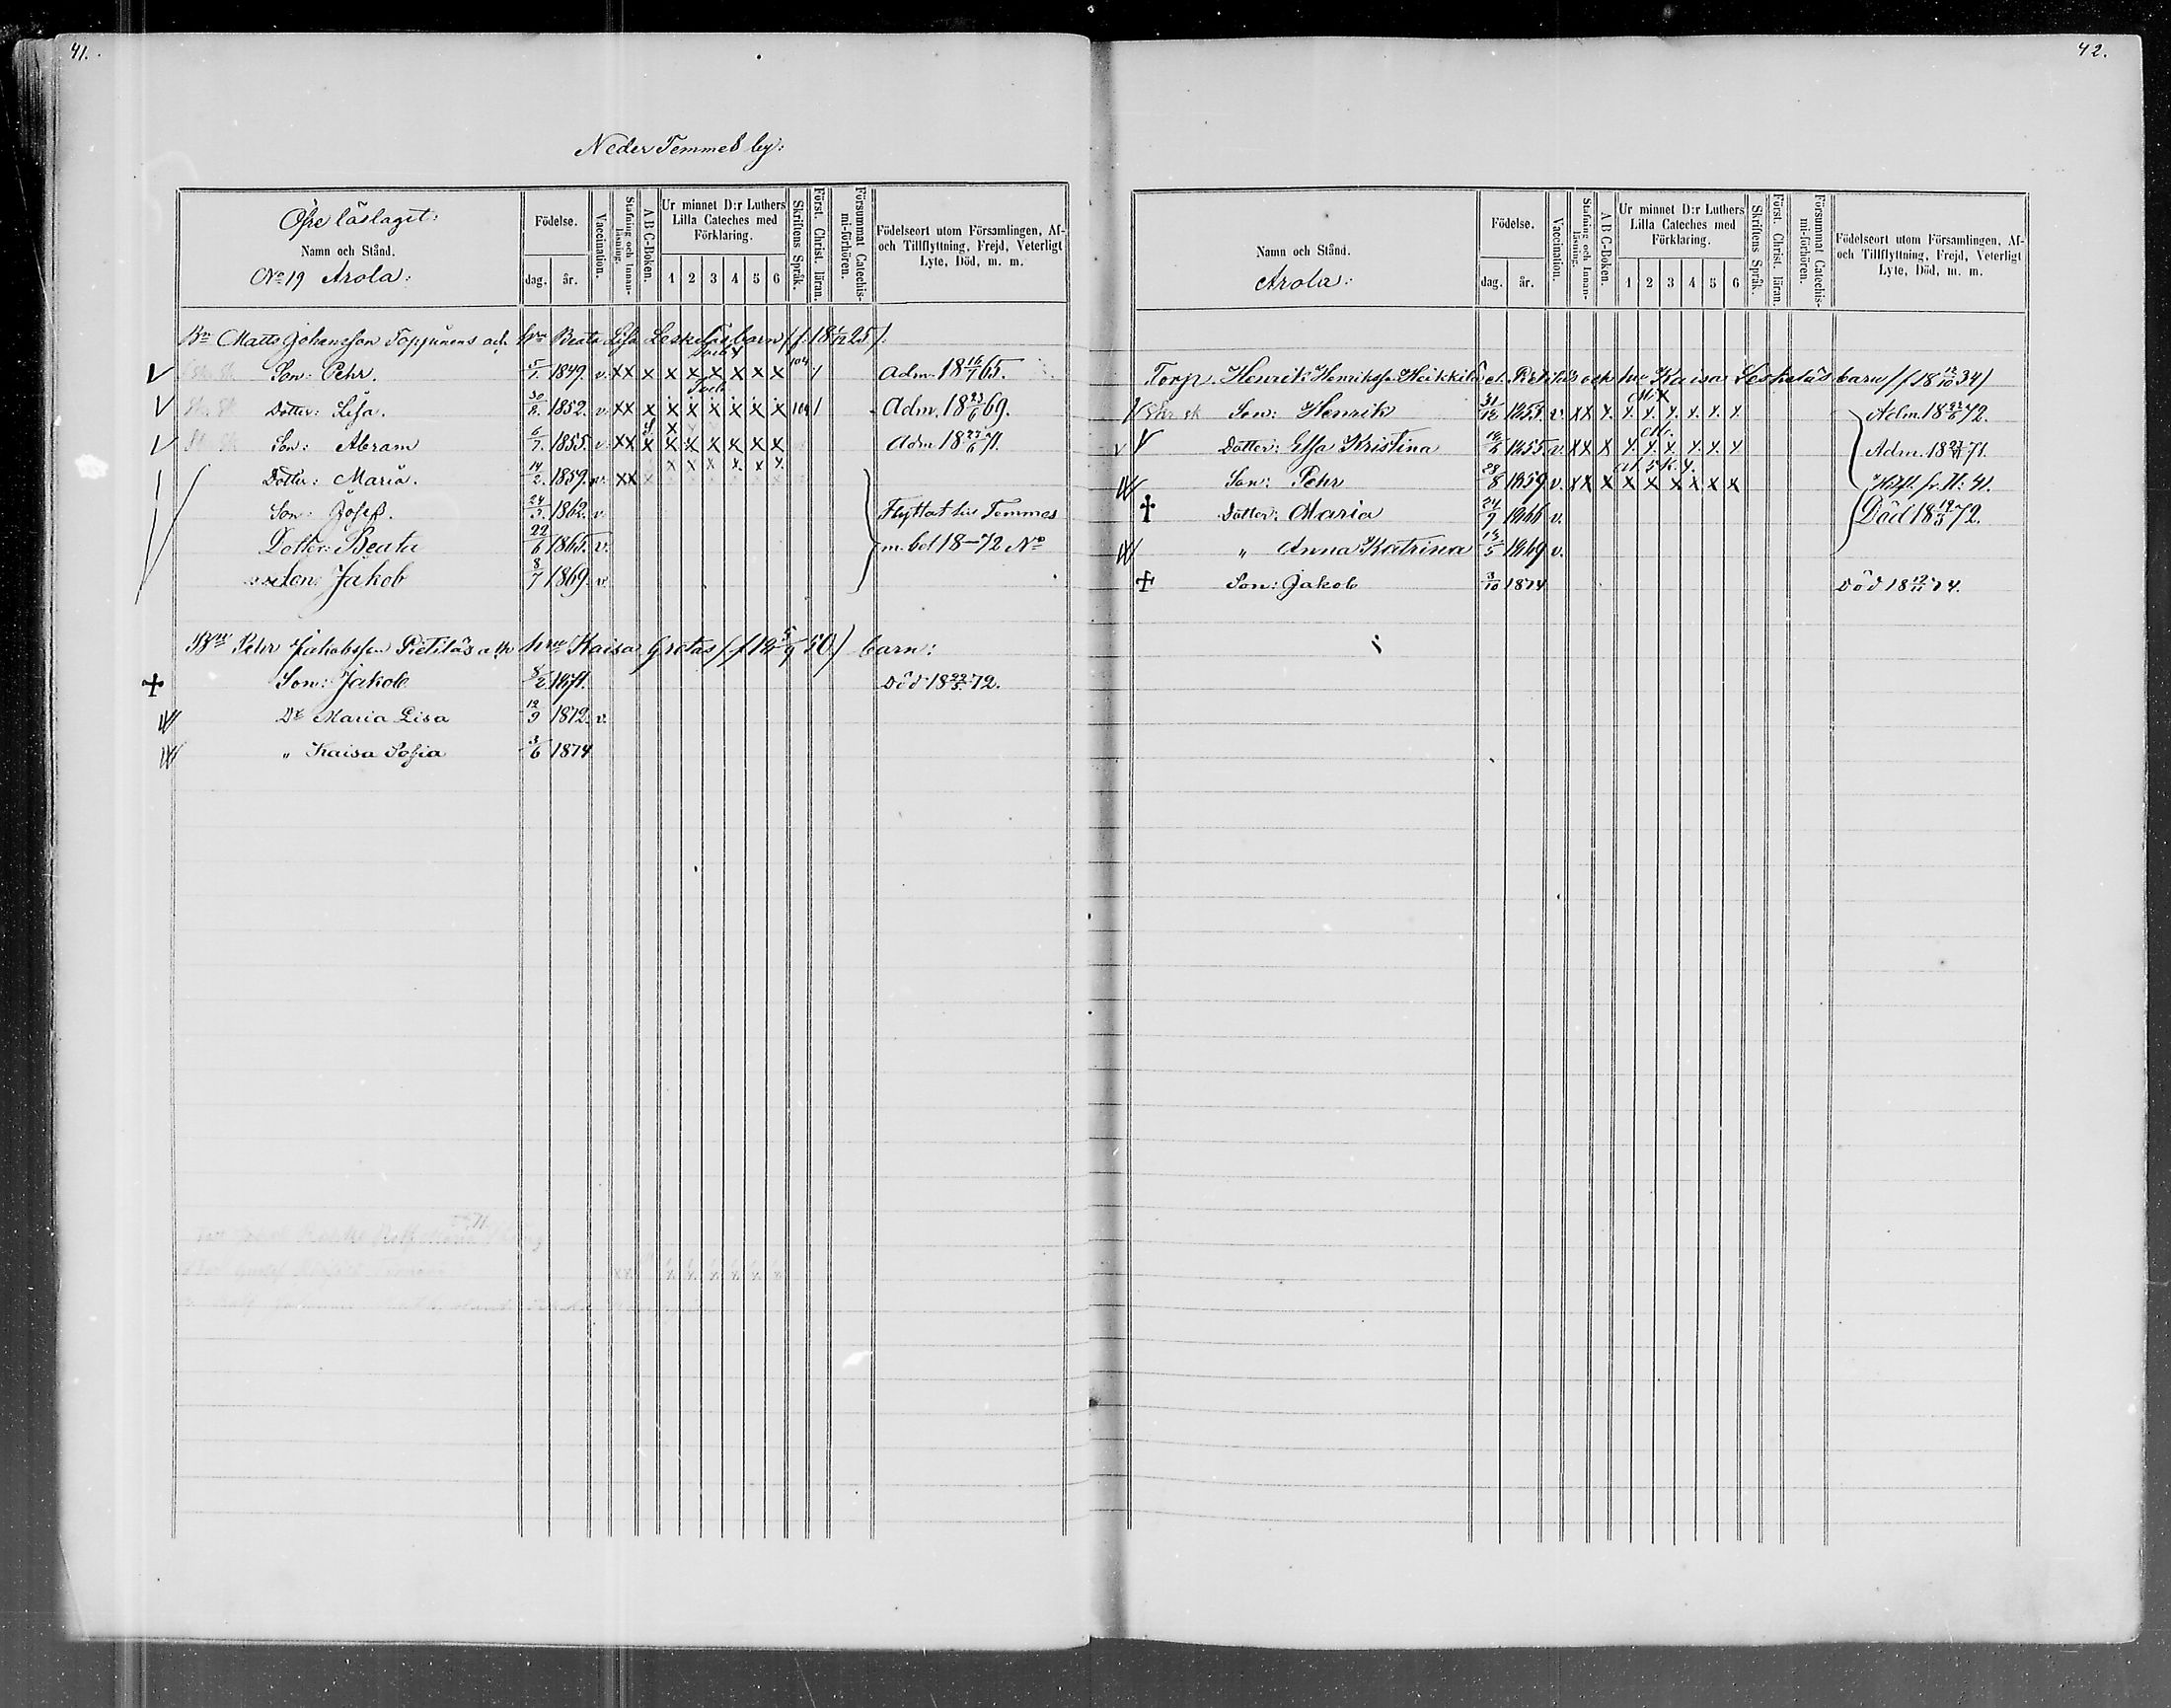 41.
Neder Temmes by:
Öfre läslaget:
Namn och Stånd.
No 19 Arola:
Födelse.
dag. år.
Vaccination.
Stafning och Innanläsning.
A B C-Boken.
Ur minnet D:r Luthers Lilla Cateches med Förklaring.
1 2 3 4 5 6
Skriftens Språk.
Först. Christ. läran.
Försummat Catechismi-förhören.
Födelseort utom Församlingen, Af- och Tillflyttning, Frejd, Veterligt Lyte, Död, m. m.
Bn Matts Johansson Toppinens och hru Beata Lisa Leskeläs barn
Son: Pehr. 5/7. 1849. v. xx x x x x x x x 104 / Adm. 18 16/7 65.
Dotter: Lisa. 30/8. 1852. v. xx x x x x x x x 104 / Adm. 18 23/6 69.
Son: Abram 6/7. 1855. v. xx x x x x x x x Adm 18 6 71.
Dotter: Maria. 14/2. 1859. v. xx x x x x x x
Son: Josef. 24/3 1862. v. Flyttat till Temmes
Dotter: Beata 22/6 1865. v. m. bet 18-72 No
Son: Jakob 8/7 1869. v.
Bn Pehr Jakobsson Pietiläs och hru Kaisa Gretas (f. 18 5/9 50) barn:
Son: Jakob 2 1871. Död 18 22/5 72.
Dr Maria Lisa 12/9 1872. v.
" Kaisa Sofia 3/6 1874
42.
Namn och Stånd.
Arola:
Födelse.
dag. år.
Vaccination.
Stafning och Innanläsning.
A B C-Boken.
Ur minnet D:r Luthers Lilla Cateches med Förklaring.
1 2 3 4 5 6
Skriftens Språk.
Först. Christ. läran.
Försummat Catechismi-förhören.
Födelseort utom Församlingen, Af- och Tillflyttning, Frejd, Veterligt Lyte, Död, m. m.
Torp. Henrik Henriksson Heikkilä Pietiläs och hu Kaisa Leskeläs barn (f 18 12/10 34)
Son: Henrik 31/12 v. xx x. x. x. x. x. x. x. Adm. 18 72.
Dotter: Elsa Kristina 1855. v. xx x x. x. x. x. x. x Adm. 18 71.
Son: Pehr 28/8 1859 v. xx x x x x x x x
Dotter: Maria 24/9 1866 v. Död 18 19/3 72.
" Anna Katrina 13/5 1869 v.
Son: Jakob 3/10 1874 Död 18 12/11 74.